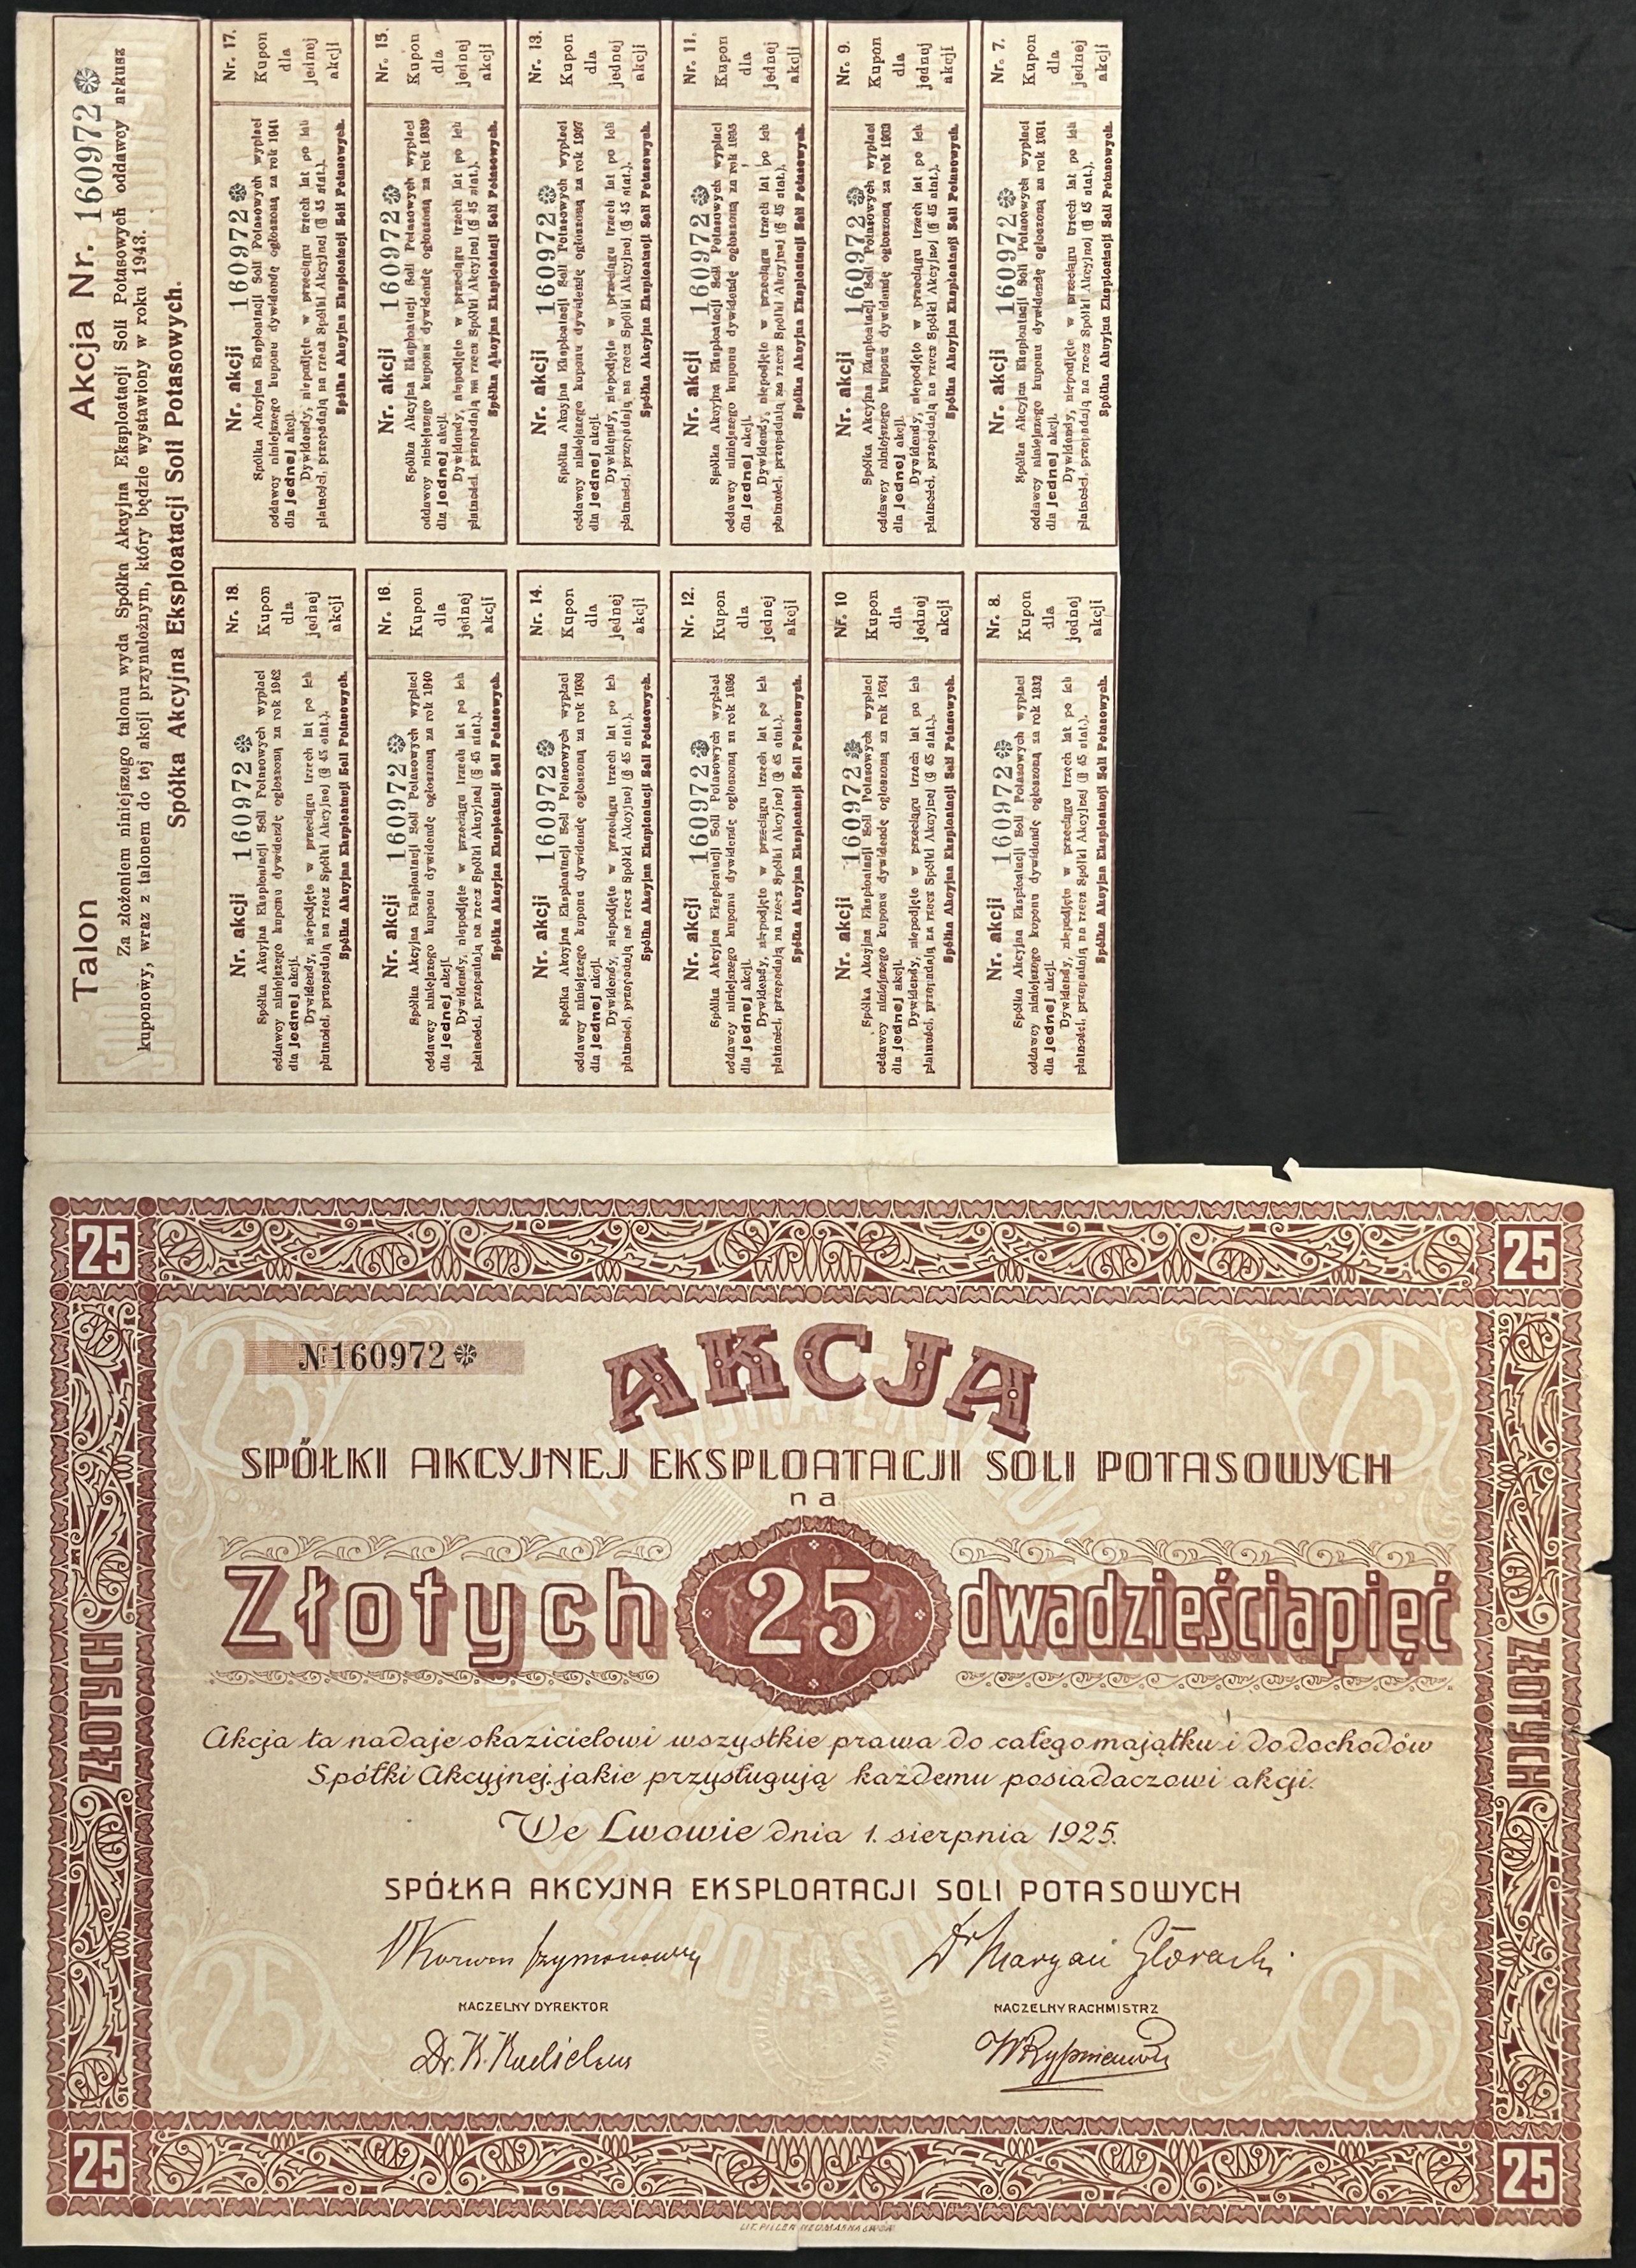 Talon Akcja Nr. 160972
Za złożeniem niniejszego talonu wyda Spółka Akcyjna Eksploatacji Soli Potasowych oddawcy arkusz
kuponowy, wraz z talonem do tej akcji przynależnym, który będzie wystawiony w roku 1943.
Spółka Akcyjna Eksploatacji Soli Potasowych.
Nr. 17.
Kupon
dla
jednej
akcji
Nr. akcji 160972
Spółka Akcyjna Eksploatacji Soli Potasowych wypłaci
oddawcy niniejszego kuponu dywidendę ogłoszoną za rok 1941
dla jednej akcji.
Dywidendy, niepodjęte w przeciągu trzech lat po ich
płatności, przepadają na rzecz Spółki Akcyjnej (§ 45 stat.).
Spółka Akcyjna Eksploatacji Soli Potasowych.
Nr. 15.
Kupon
dla
jednej
akcji
Nr. akcji 160972
Spółka Akcyjna Eksploatacji Soli Potasowych wypłaci
oddawcy niniejszego kuponu dywidendę ogłoszoną za rok 1939
dla jednej akcji.
Dywidendy, niepodjęte w przeciągu trzech lat po ich
płatności, przepadają na rzecz Spółki Akcyjnej (§ 45 stat.).
Spółka Akcyjna Eksploatacji Soli Potasowych.
Nr. 13.
Kupon
dla
jednej
akcji
Nr. akcji 160972
Spółka Akcyjna Eksploatacji Soli Potasowych wypłaci
oddawcy niniejszego kuponu dywidendę ogłoszoną za rok 1937
dla jednej akcji.
Dywidendy, niepodjęte w przeciągu trzech lat po ich
płatności, przepadają na rzecz Spółki Akcyjnej (§ 45 stat.).
Spółka Akcyjna Eksploatacji Soli Potasowych.
Nr. 11.
Kupon
dla
jednej
akcji
Nr. akcji 160972
Spółka Akcyjna Eksploatacji Soli Potasowych wypłaci
oddawcy niniejszego kuponu dywidendę ogłoszoną za rok 1935
dla jednej akcji.
Dywidendy, niepodjęte w przeciągu trzech lat po ich
płatności, przepadają na rzecz Spółki Akcyjnej (§ 45 stat.).
Spółka Akcyjna Eksploatacji Soli Potasowych.
Nr. 9.
Kupon
dla
jednej
akcji
Nr. akcji 160972
Spółka Akcyjna Eksploatacji Soli Potasowych wypłaci
oddawcy niniejszego kuponu dywidendę ogłoszoną za rok 1933
dla jednej akcji.
Dywidendy, niepodjęte w przeciągu trzech lat po ich
płatności, przepadają na rzecz Spółki Akcyjnej (§ 45 stat.).
Spółka Akcyjna Eksploatacji Soli Potasowych.
Nr. 7.
Kupon
dla
jednej
akcji
Nr. akcji 160972
Spółka Akcyjna Eksploatacji Soli Potasowych wypłaci
oddawcy niniejszego kuponu dywidendę ogłoszoną za rok 1931
dla jednej akcji.
Dywidendy, niepodjęte w przeciągu trzech lat po ich
płatności, przepadają na rzecz Spółki Akcyjnej (§ 45 stat.).
Spółka Akcyjna Eksploatacji Soli Potasowych.
Nr. 18.
Kupon
dla
jednej
akcji
Nr. akcji 160972
Spółka Akcyjna Eksploatacji Soli Potasowych wypłaci
oddawcy niniejszego kuponu dywidendę ogłoszoną za rok 1942
dla jednej akcji.
Dywidendy, niepodjęte w przeciągu trzech lat po ich
płatności, przepadają na rzecz Spółki Akcyjnej (§ 45 stat.).
Spółka Akcyjna Eksploatacji Soli Potasowych.
Nr. 16.
Kupon
dla
jednej
akcji
Nr. akcji 160972
Spółka Akcyjna Eksploatacji Soli Potasowych wypłaci
oddawcy niniejszego kuponu dywidendę ogłoszoną za rok 1940
dla jednej akcji.
Dywidendy, niepodjęte w przeciągu trzech lat po ich
płatności, przepadają na rzecz Spółki Akcyjnej (§ 45 stat.).
Spółka Akcyjna Eksploatacji Soli Potasowych.
Nr. 14.
Kupon
dla
jednej
akcji
Nr. akcji 160972
Spółka Akcyjna Eksploatacji Soli Potasowych wypłaci
oddawcy niniejszego kuponu dywidendę ogłoszoną za rok 1938
dla jednej akcji.
Dywidendy, niepodjęte w przeciągu trzech lat po ich
płatności, przepadają na rzecz Spółki Akcyjnej (§ 45 stat.).
Spółka Akcyjna Eksploatacji Soli Potasowych.
Nr. 12.
Kupon
dla
jednej
akcji
Nr. akcji 160972
Spółka Akcyjna Eksploatacji Soli Potasowych wypłaci
oddawcy niniejszego kuponu dywidendę ogłoszoną za rok 1936
dla jednej akcji.
Dywidendy, niepodjęte w przeciągu trzech lat po ich
płatności, przepadają na rzecz Spółki Akcyjnej (§ 45 stat.).
Spółka Akcyjna Eksploatacji Soli Potasowych.
Nr. 10
Kupon
dla
jednej
akcji
Nr. akcji 160972
Spółka Akcyjna Eksploatacji Soli Potasowych wypłaci
oddawcy niniejszego kuponu dywidendę ogłoszoną za rok 1934
dla jednej akcji.
Dywidendy, niepodjęte w przeciągu trzech lat po ich
płatności, przepadają na rzecz Spółki Akcyjnej (§ 45 stat.).
Spółka Akcyjna Eksploatacji Soli Potasowych.
Nr. 8.
Kupon
dla
jednej
akcji
Nr. akcji 160972
Spółka Akcyjna Eksploatacji Soli Potasowych wypłaci
oddawcy niniejszego kuponu dywidendę ogłoszoną za rok 1932
dla jednej akcji.
Dywidendy, niepodjęte w przeciągu trzech lat po ich
płatności, przepadają na rzecz Spółki Akcyjnej (§ 45 stat.).
Spółka Akcyjna Eksploatacji Soli Potasowych.
25 25
№ 160972
AKCJA
SPÓŁKI AKCYJNEJ EKSPLOATACJI SOLI POTASOWYCH
na
Złotych 25 dwadzieściapięć
ZŁOTYCH
ZŁOTYCH
Akcja ta nadaje okazicielowi wszystkie prawa do całego majątku i do dochodów
Spółki Akcyjnej, jakie przysługują każdemu posiadaczowi akcji.
We Lwowie dnia 1. sierpnia 1925.
SPÓŁKA AKCYJNA EKSPLOATACJI SOLI POTASOWYCH
Dr Maryan Głorachi
NACZELNY DYREKTOR NACZELNY RACHMISTRZ
25 25